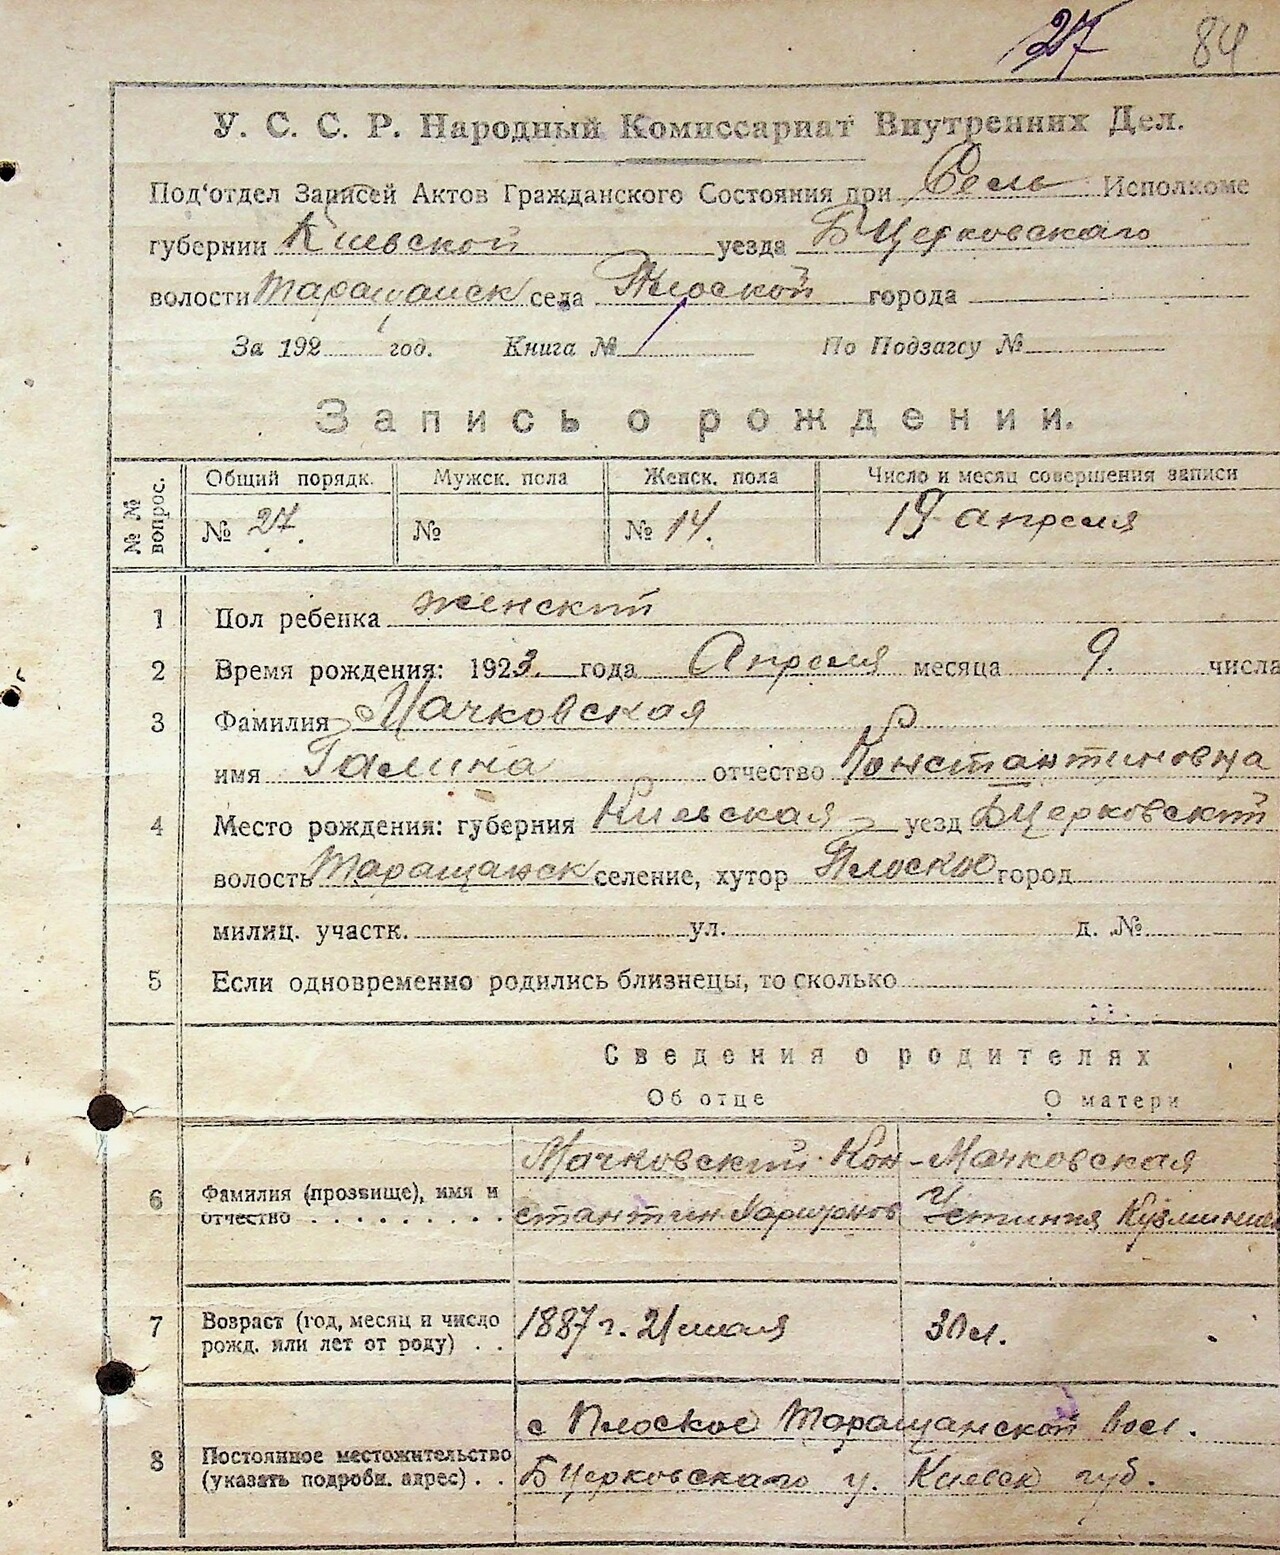 27 84
У. С. С. Р. Народный Комиссариат Внутренних Дел.
Под'отдел Записей Актов Гражданского Состояния при Сель Исполкоме
губернии Киевской уезда БЦерковского
волости Таращанск села Плоской города
За 192 год. Книга № По Подзагсу №
Запись о рождении.
№ № вопрос. Общий порядк. Мужск. пола Женск. пола Число и месяц совершения записи
№ 27. № № 14. 19 апреля
1 Пол ребенка женский
2 Время рождения: 1923. года Апреля месяца 9. числа
3 Фамилия Мачковская
имя Галина отчество Константиновна
4 Место рождения: губерния Киевская уезд БЦерковский
волость Таращанск селение, хутор Плоское город
милиц. участк. ул. д. №
5 Если одновременно родились близнецы, то сколько
Сведения о родителях
Об отце О матери
Мачковский Кон- Мачковская
6 Фамилия (прозвище), имя и
отчество стантин Кузминишна
7 Возраст (год, месяц и число
рожд. или лет от роду) 1887 г. 21 мая 30 л.
с Плоское Таращанской Вол.
8 Постоянное местожительство
(указать подробн. адрес) БЦерковского у. Киевск губ.